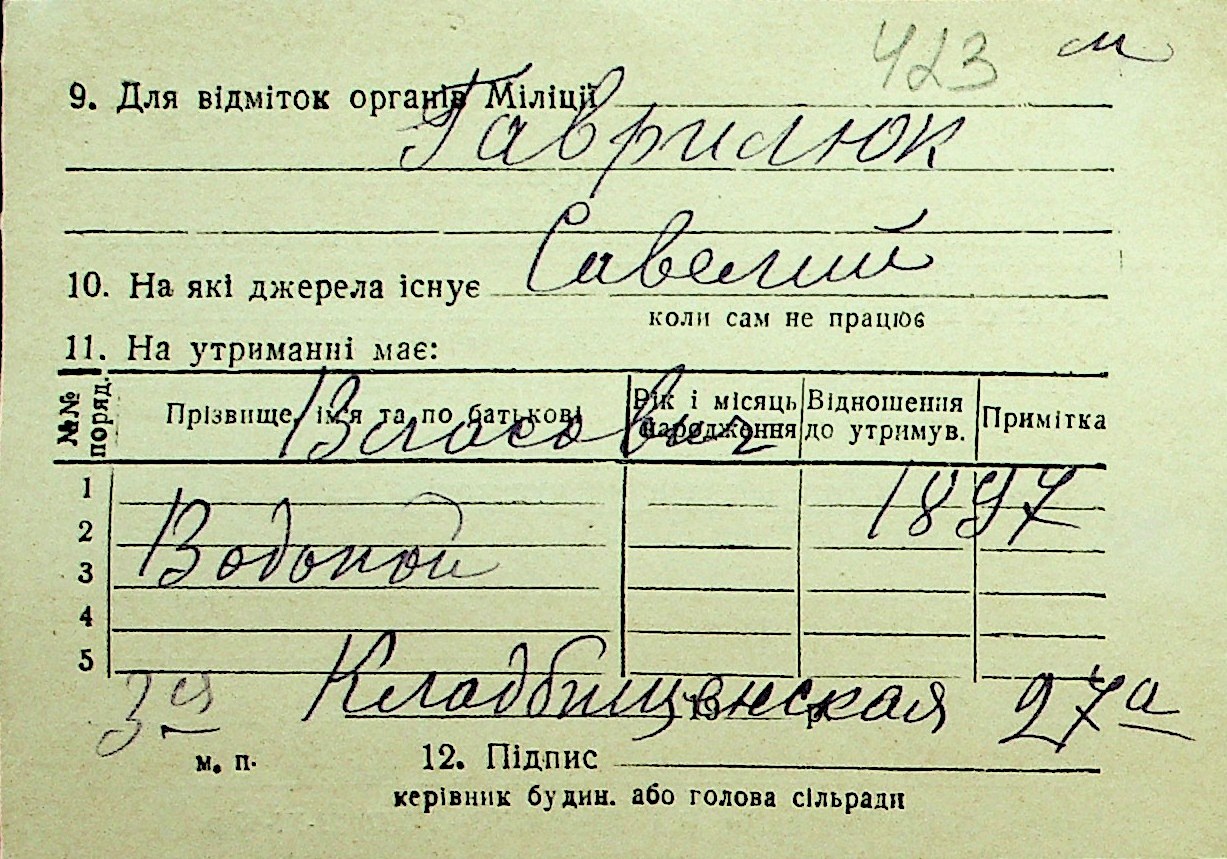 423 м
9. Для відміток органів Міліції
Гаврилюк
Савелий
10. На які джерела існує
коли сам не працює
11. На утриманні має:
№№ поряд. Прізвище, ім'я та по батькові Рік і місяць народження Відношення до утримув. Примітка
Власович
1
1897
2
Водопой
3
4
5
3я Кладбищенская 27а
19 р.
м. п. 12. Підпис
керівник будин. або голова сільради